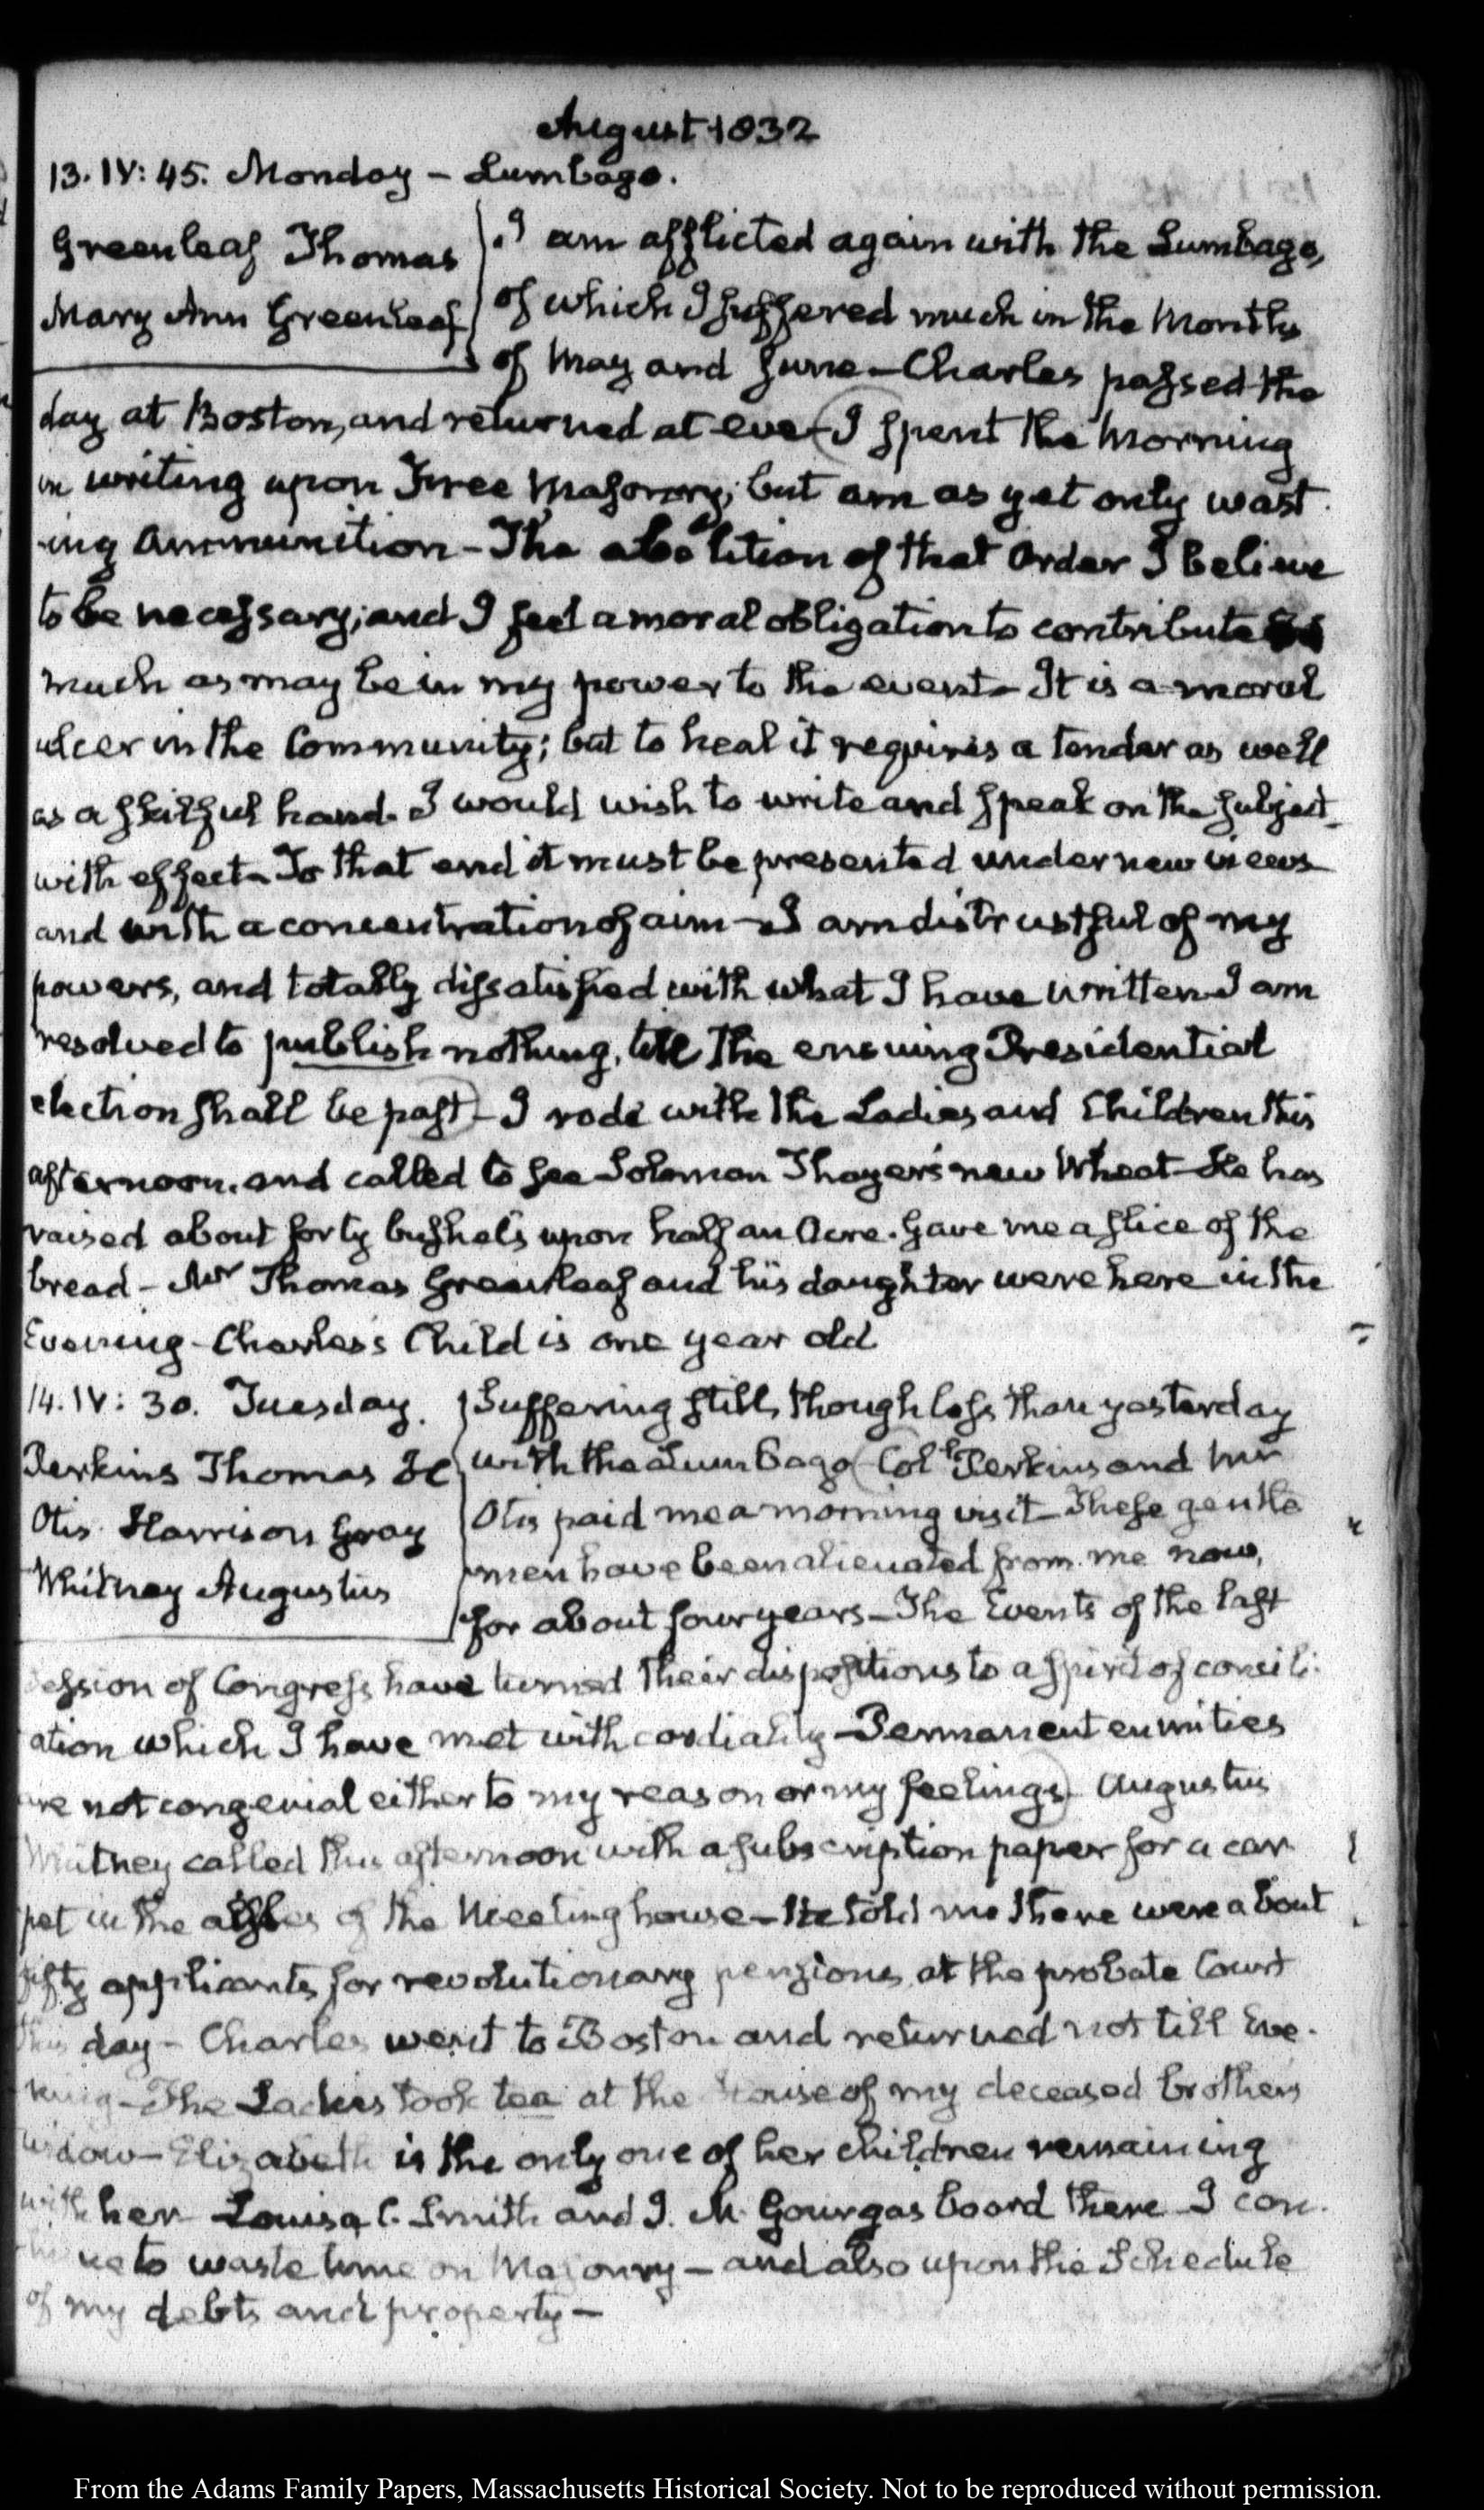 August 1832
13. IV: 45. Monday - Lumbago.
Greenleaf Thomas
Mary Ann Greenleaf
I am afflicted again with the Lumbago,
of which I suffered much in the Months
of May and June - Charles passed the
day at Boston, and returned at eve - I spent the Morning
in writing upon Free Masonry; but am as yet only wast-
-ing Ammunition - The abolition of that Order I believe
to be necessary; and I feel a moral obligation to contribute as
much as may be in my power to the event - It is a moral
ulcer in the Community; but to heal it requires a tender as well
as a skilful hand. I would wish to write and speak on the subject
with effect - To that end it must be presented under new views
and with a concentration of aim - I am distrustful of my
powers, and totally dissatisfied with what I have written I am
resolved to publish nothing, till the ensuing Presidential
election shall be past - I rode with the Ladies and Children this
afternoon, and called to see Solomon Thayer's new Wheat - He has
raised about forty bushels upon half an Acre. Gave me a slice of the
bread - Mr Thomas Greenleaf and his daughter were here in the
Evening - Charles's Child is one year old
14. IV: 30. Tuesday.
Perkins Thomas H
Otis Harrison Gray
Whitney Augustus
Suffering still, though less than yesterday
with the Lumbago Coll. Perkins and Mr
Otis paid me a morning visit - These gentle
men have been alienated from me now,
for about four years - The Events of the last
session of Congress have turned their dispositions to a spirit of concili-
ation which I have met with cordiality - Permanent enmities
are not congenial either to my reason or my feelings. Augustus
Whitney called this afternoon with a subscription paper for a car
pet in the aisles of the Meeting house - He told me there were about
fifty applicants for revolutionary pensions, at the probate Court
this day - Charles went to Boston and returned not till Eve-
ning - The Ladies took tea at the House of my deceased brothers
widow - Elizabeth is the only one of her children remaining
with her Louisa C. Smith and J. M. Gourgas board there I con-
tinue to waste time on Masonry - and also upon the Schedule
of my debts and property -
From the Adams Family Papers, Massachusetts Historical Society. Not to be reproduced without permission.